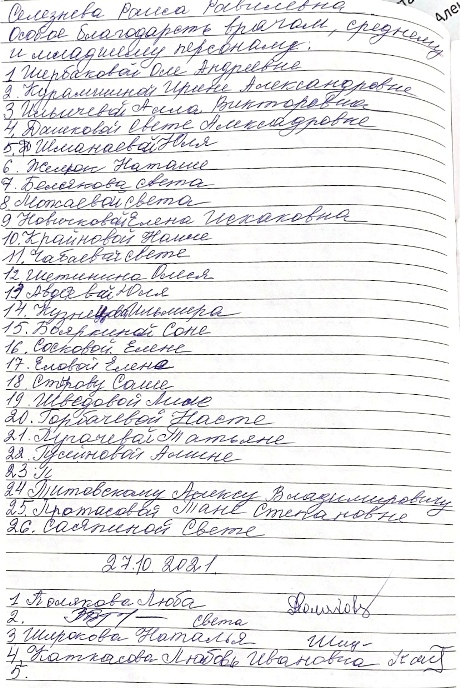 Селезнева Раиса Равилевна
Особое благодарсть врачам, среднему
и младшему персоналу:
1 Щербаковой Оле Андреевне
2. Курамшиной Ирине Александровне
3 Ильичевой Алла Викторовна
4. Дашковой Свете Александровне
5. Шманаевой Юля
6. Наташе
7. Белякова Света
8 Можаевой Света
9 Новичковой Елена Исхаковна
10. Крайновой Наташе
11. Свете
12 Щетинина Олеся
13 Авдеевой Юля
14. Кузнецовы Эльмира
15. Бояркиной Соне
16. Сосковой Елене
17. Еловой Елена
18 Саше
19. Шведовой
20. Горбачевой Насте
21. Татьяне
22. Гусиновой Алине
23 П
24 Титовскому Алексу Владимировичу
25. Протасовой Тане Степановне
26. Саяпиной Свете
27.10.2021.
1 Полякова Люба
2. Света
3 Широкова Наталья
4. Каткасова Любовь Ивановна
5.